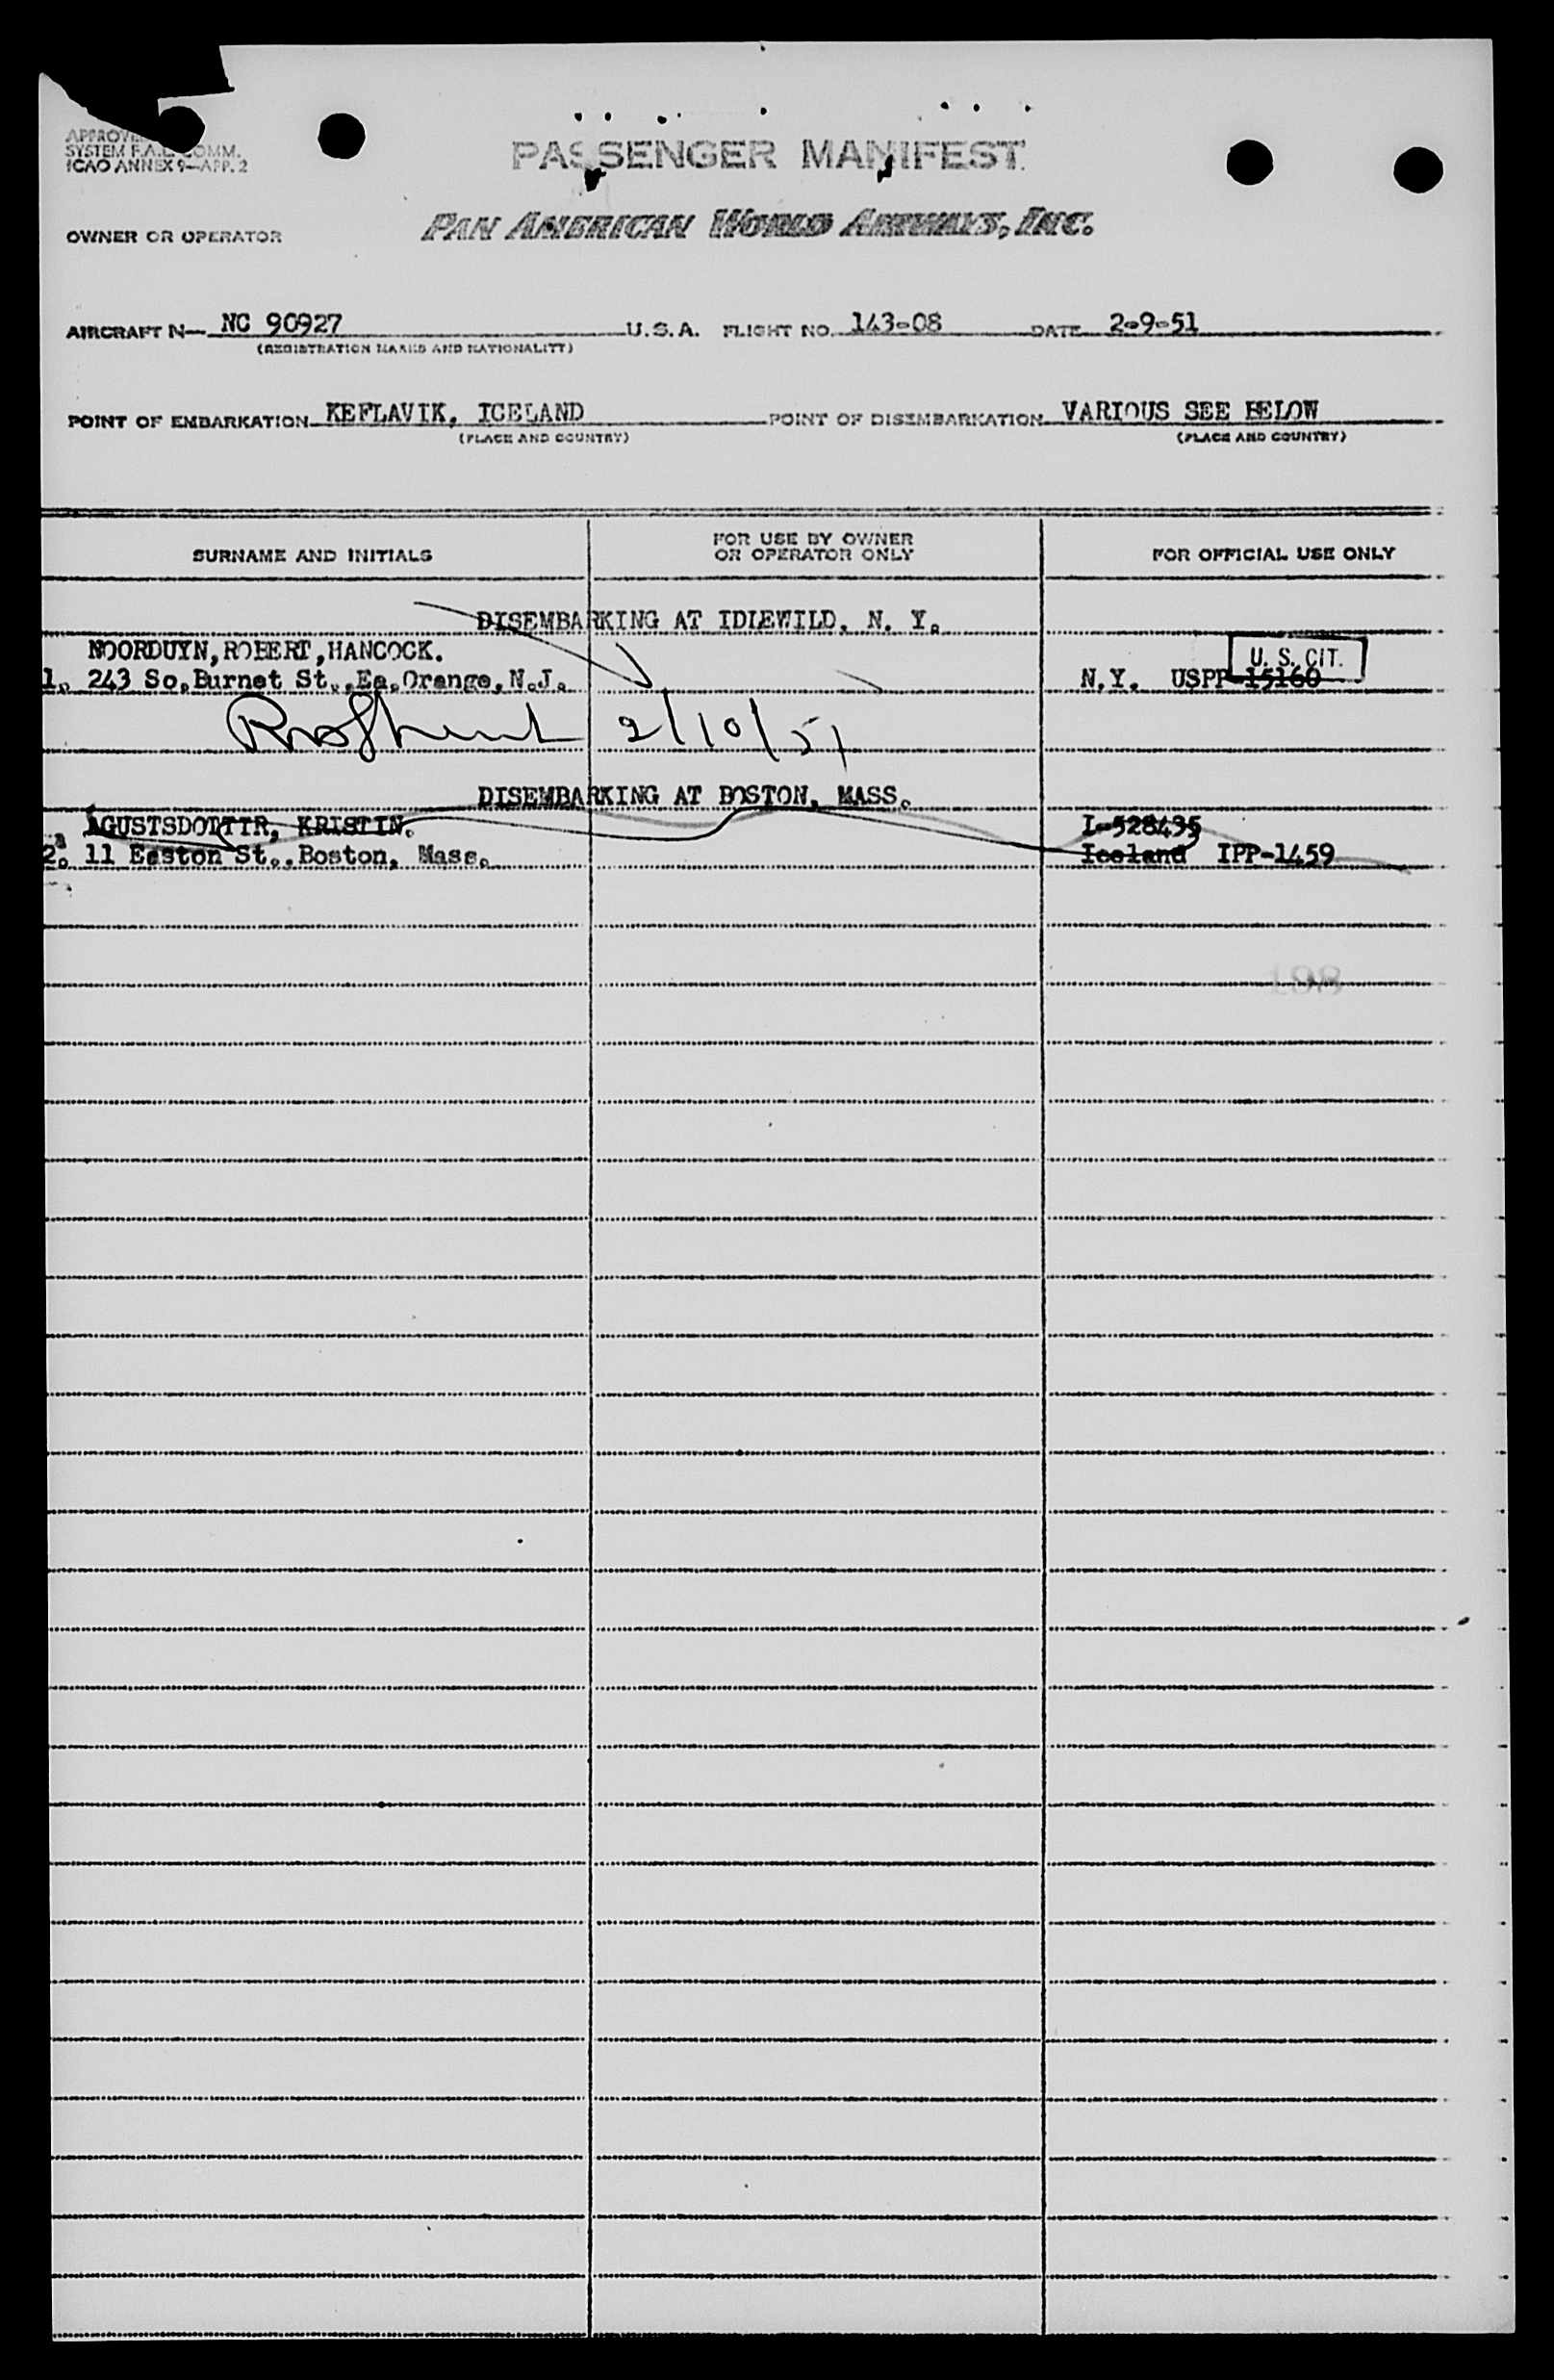 SYSTEM F.A.L. COMM.
ICAO ANNEX 9—APP. 2
PASSENGER MANIFEST
OWNER OR OPERATOR PAN AMERICAN WORLD AIRWAYS, INC.
AIRCRAFT N— NC 90927 U.S.A. FLIGHT NO. 143-08 DATE 2-9-51
(REGISTRATION MARKS AND NATIONALITY)
POINT OF EMBARKATION KEFLAVIK, ICELAND POINT OF DISEMBARKATION VARIOUS SEE BELOW
(PLACE AND COUNTRY) (PLACE AND COUNTRY)
SURNAME AND INITIALS FOR USE BY OWNER OR OPERATOR ONLY FOR OFFICIAL USE ONLY
DISEMBARKING AT IDLEWILD, N. Y.
NOORDUYN,ROBERT,HANCOCK. U. S. CIT.
1. 243 So.Burnet St.,Ea.Orange,N.J. N.Y. USPP-15160
2/10/51
DISEMBARKING AT BOSTON, MASS.
AGUSTSDOTTIR, KRISTIN. I-528435
2. 11 Easton St.,Boston, Mass. Iceland IPP-1459
198